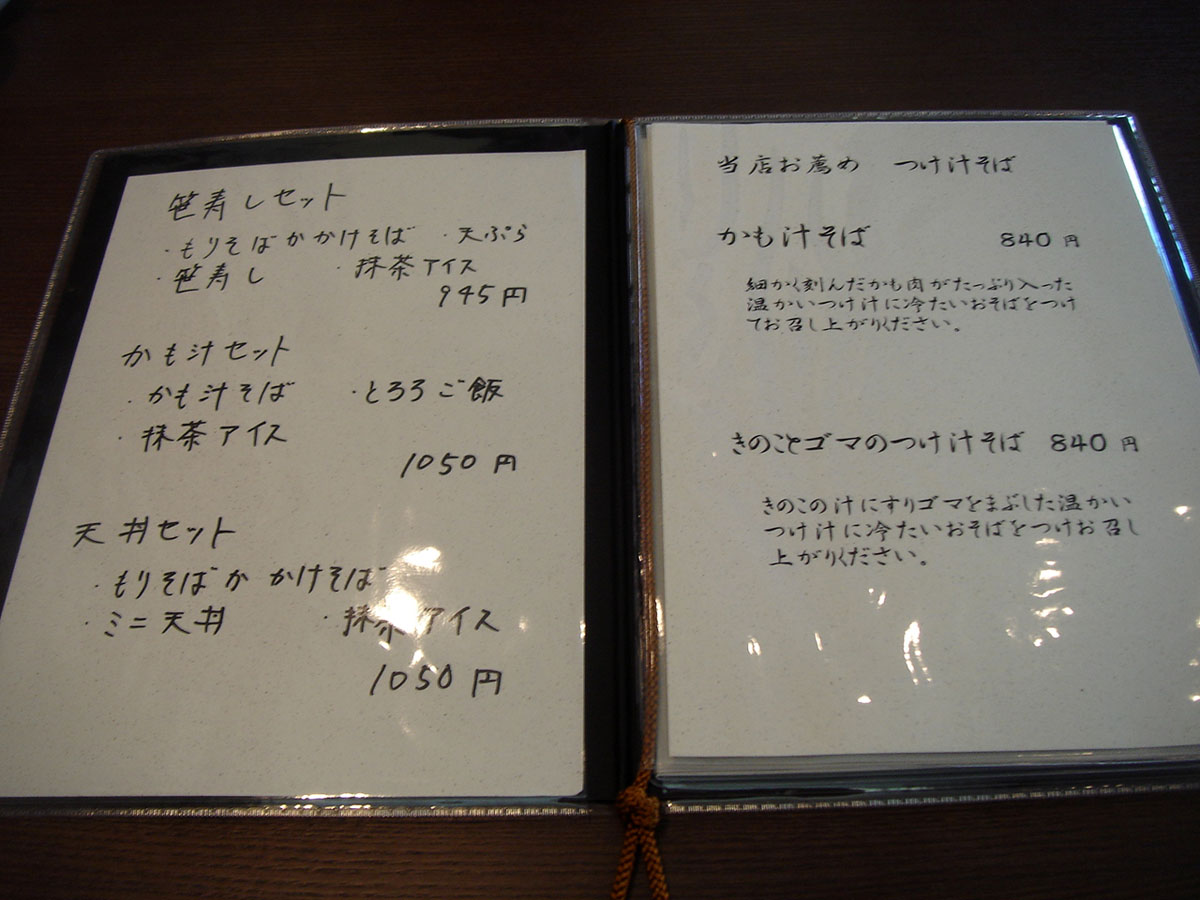 笹寿しセット
・もりそばかかけそば ・天ぷら
・笹寿し ・抹茶アイス
945円
かも汁セット
・かも汁そば ・とろろご飯
・抹茶アイス
1050円
天丼セット
・もりそばか かけそば
・ミニ天丼 ・抹茶アイス
1050円
当店お薦め つけ汁そば
かも汁そば 840円
細かく刻んだかも肉がたっぷり入った
温かいつけ汁に冷たいおそばをつけ
てお召し上がりください。
きのことゴマのつけ汁そば 840円
きのこの汁にすりゴマをまぶした温かい
つけ汁に冷たいおそばをつけお召し
上がりください。